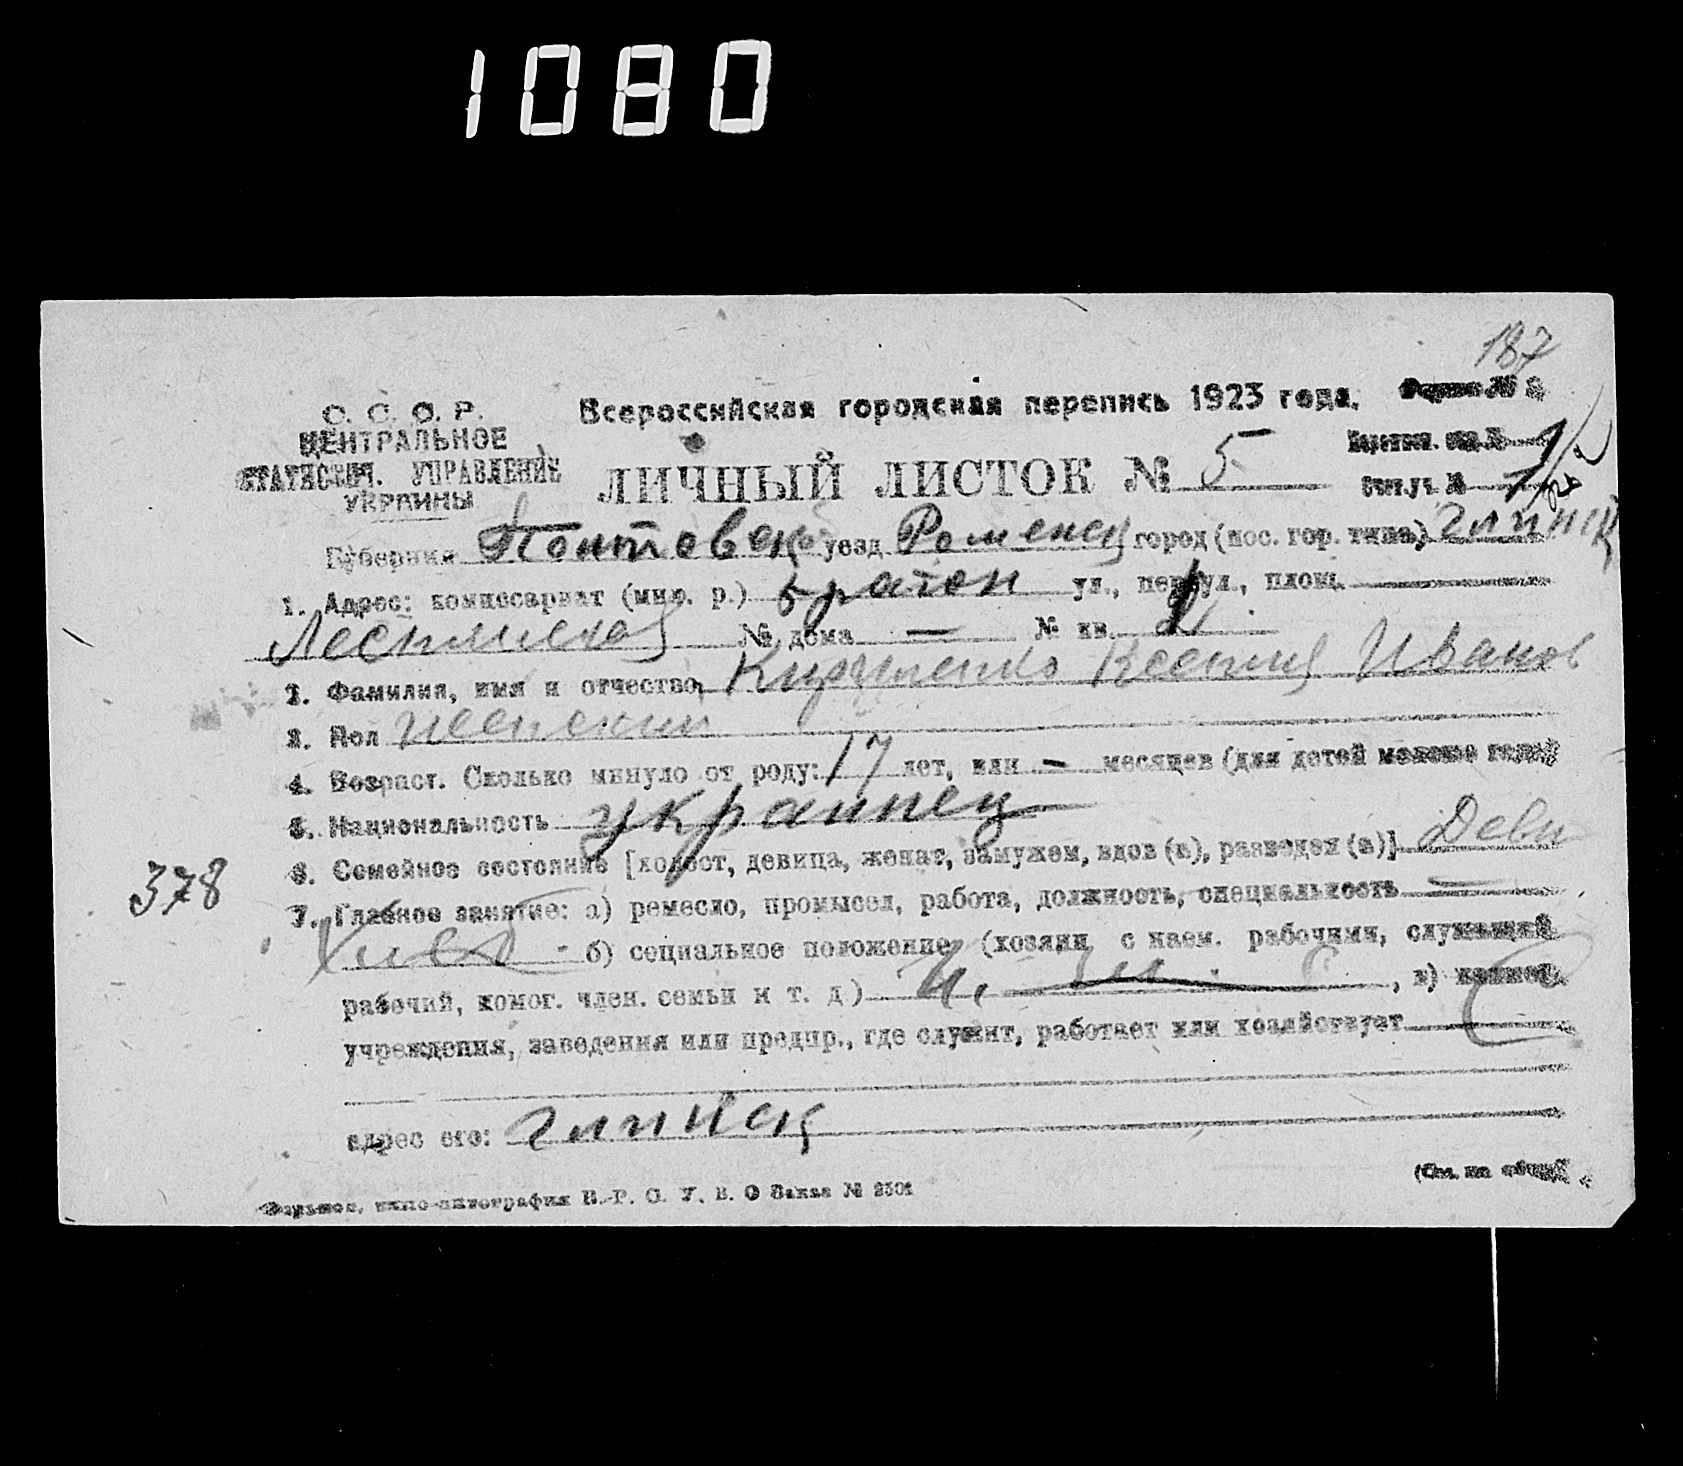 1080
187
С. С. С. Р.
ЦЕНТРАЛЬНОЕ
СТАТИСТИЧ. УПРАВЛЕНИЕ
УКРАИНЫ
Всероссийская городская перепись 1923 года.
Форма №
ЛИЧНЫЙ ЛИСТОК № 5
Счет. уч. №
Губерния Полтавск уезд Роменск город (пос. гор. типа) Глинск
1. Адрес: комиссариат (мил. р.) 5 район ул., пер., ул., площ.
№ дома — № кв.
2. Фамилия, имя и отчество Ксения Иванов
3. Пол женский
4. Возраст. Сколько минуло от роду: 17 лет, или — месяцев (для детей моложе года)
5. Национальность украинец
6. Семейное состояние [холост, девица, женат, замужем, вдов (а), разведен (а)] Деви
378
7. Главное занятие: а) ремесло, промысел, работа, должность, специальность —
б) социальное положение (хозяин с наем. рабочими, служащий
рабочий, помог. член. семьи и т. д)
, в) наимен.
учреждения, заведения или предпр., где служит, работает или хозяйствует
адрес его: Глинск
(См. на обор.)
Харьков, типо-литография Н.-Р. С. У. В. О Заказ №